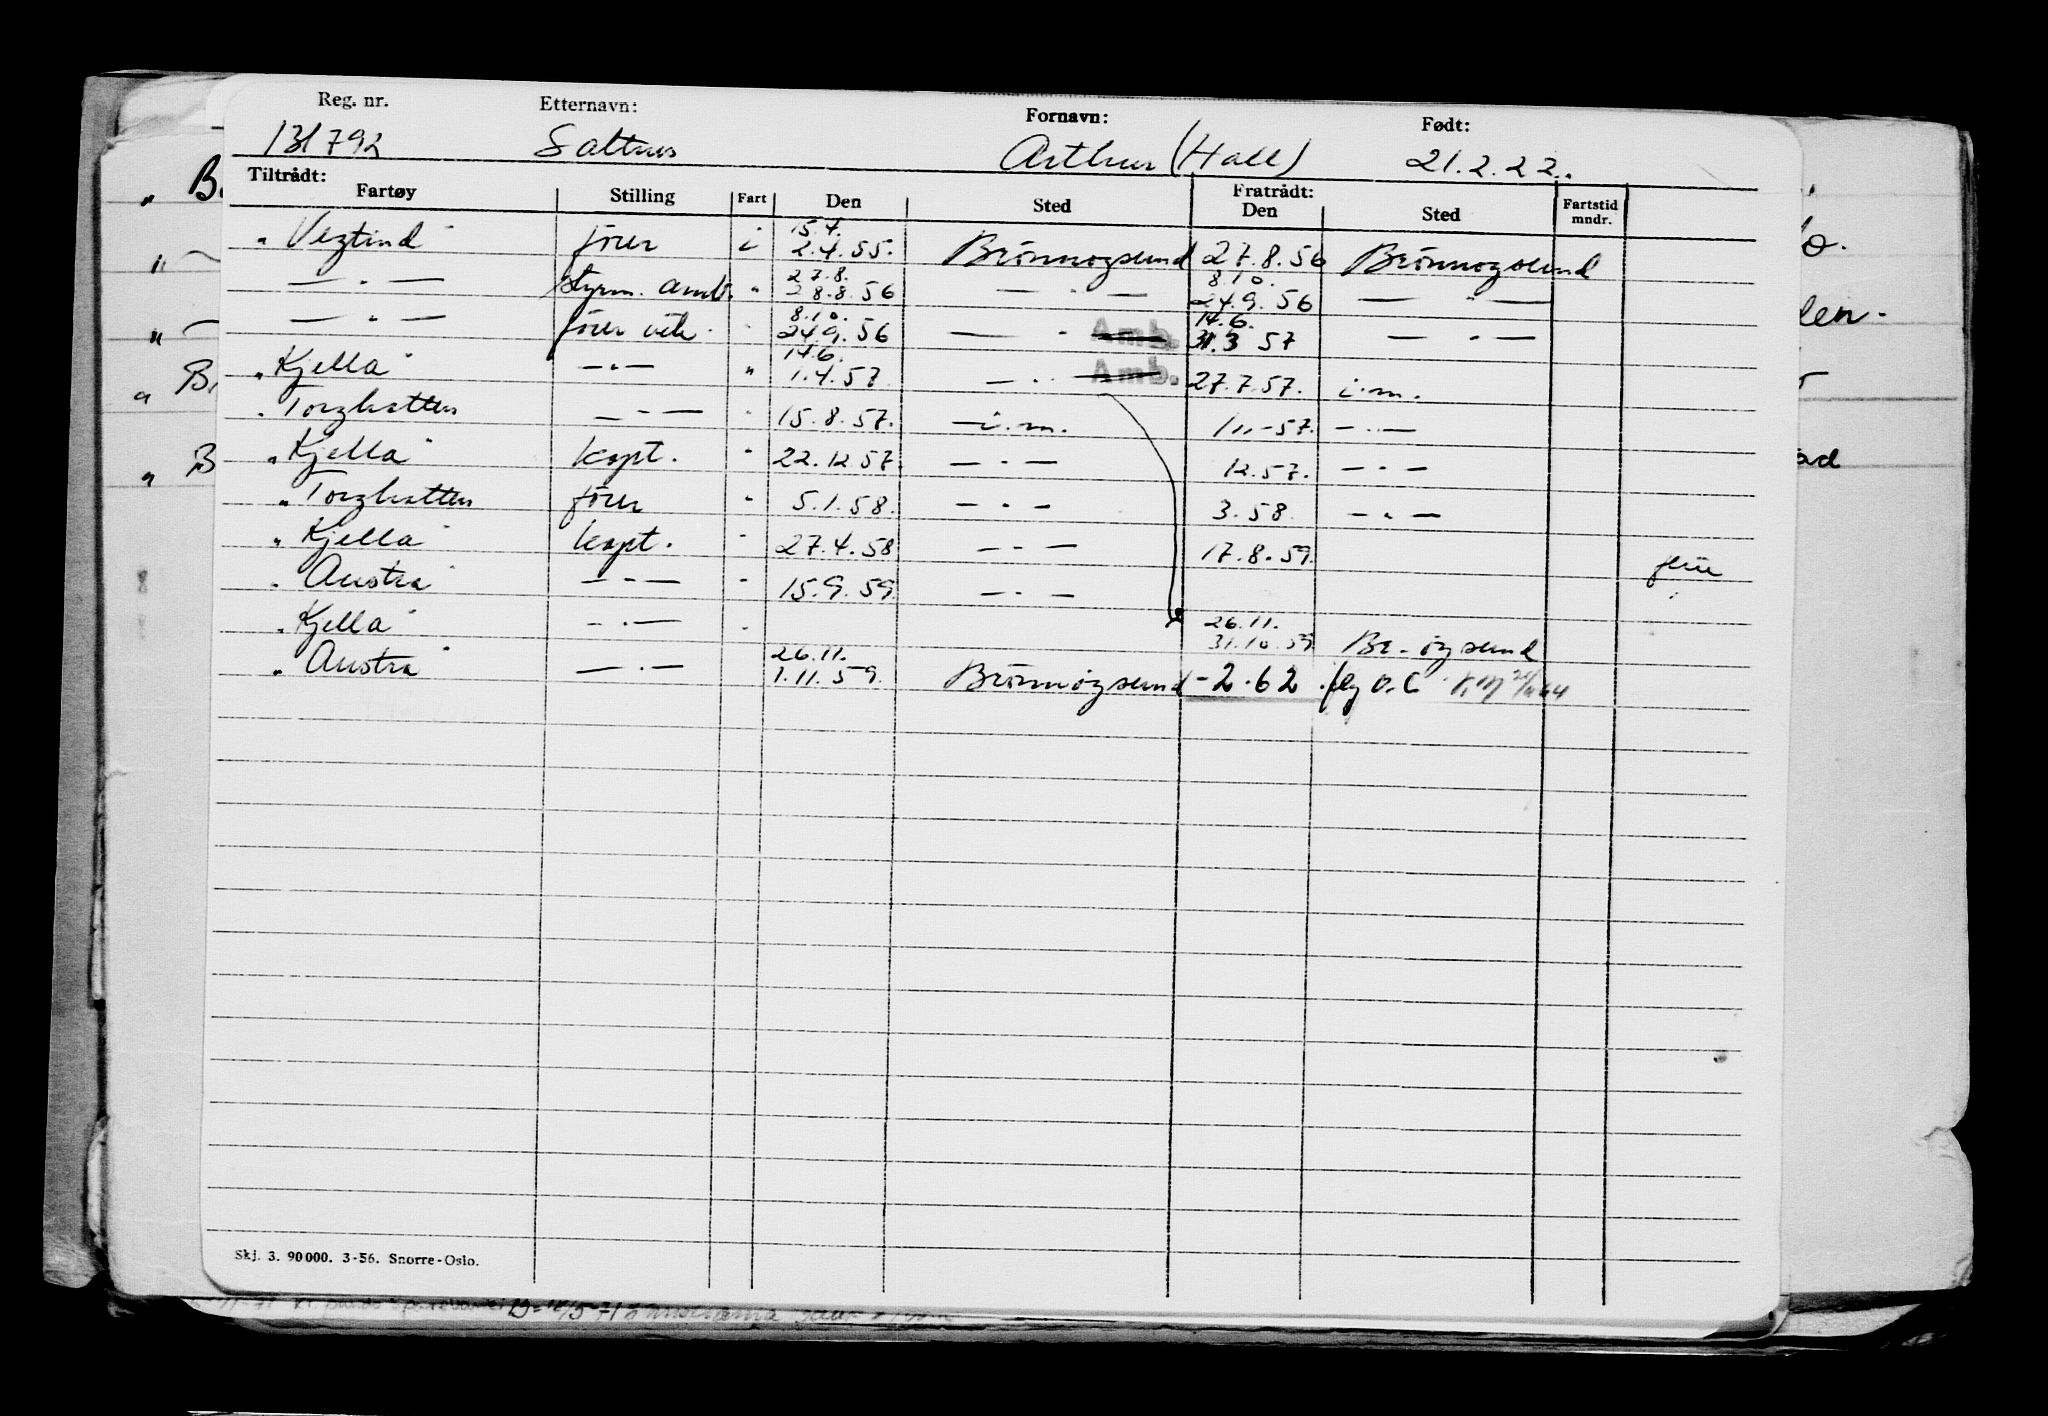 Reg. nr. Etternavn: Fornavn: Født:
131792 Saltnes Arthur (Hall) 21.2.22.
Tiltrådt: Fratrådt:
Fartøy Stilling Fart Den Sted Den Sted Fartstid mndr.
15.4.
" Vegtind " fører i 2.4.55. Brönnøysund 27.8.56 Brönnøysund
27.8. 8.10.
— " — styrm. amb. " 28.8.56 — " — 24.9.56 — " —
8.10. 14.6.
— " — fører " 24.9.56 — " — Amb. 31.3 57 — " —
14.6.
" Kjella " — " — " 1.4.57 — " — Amb. 27.7.57. i.m.
" Torghatten — " — " 15.8.57. — i.m. 1/11-57. — " —
" Kjella " kapt. " 22.12.57. — " — 12.57. — " —
" Torghatten fører " 5.1.58. — " — 3.58 — " —
" Kjella " kapt. " 27.4.58 — " — 17.8.59.
" Austra " — " — " 15.9.59. — " —
" Kjella " — " — " 26.11.
31.10.59 Br-øysund
26.11.
" Austra " — " — 1.11.59. Brönnøysund -2.62
Skj. 3. 90000. 3-56. Snorre-Oslo.